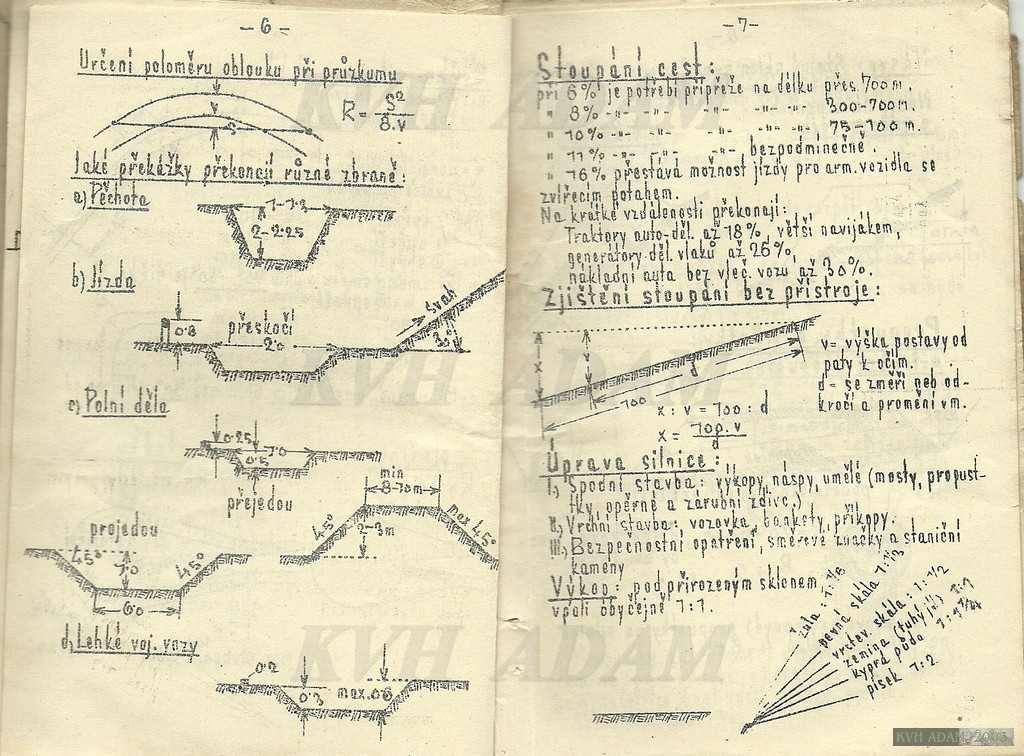 - 6 -
Určení poloměru oblouku při průzkumu
S
R = S²/8.v
Jaké překážky překonají různé zbraně:
a) Pěchota
1-1.3
2-2.25
b) Jízda
0.8
přeskočí
2.0
svah
30°
c) Polní děla
0.25
1.0
0.5
přejedou
min
8-10m
projedou
45°
1.0
45°
6.0
45°
2-3m
max 45°
d) Lehké voj. vozy
0.2
0.3
max. 0.6
- 7 -
Stoupání cest:
při 6% je potřebí přípřeže na délku přes 700m.
" 8% -"- -"- -"- -"- -"- 300-700m.
" 10% -"- -"- -"- -"- -"- 75-100m.
" 11% -"- -"- -"- bezpodmínečně.
" 16% přestává možnost jízdy pro arm. vozidla se
zvířecím potahem.
Na krátké vzdálenosti překonají:
Traktory auto-děl. až 18%, větší navijákem,
generátory děl. vlaků až 26%,
nákladní auta bez vleč. vozu až 30%.
Zjištění stoupání bez přístroje:
x
v
d
100
v = výška postavy od
paty k očím.
d = se změří neb od-
kročí a promění v m.
x : v = 100 : d
x = 100.v/d
Úprava silnice:
I.) Spodní stavba: výkopy, náspy, umělé (mosty, propust-
ky, opěrné a zárubní zdivo.)
II.) Vrchní stavba: vozovka, bankety, příkopy.
III.) Bezpečnostní opatření, směrové značky a staniční
kameny
Výkop: pod přirozeným sklonem,
v poli obyčejně 1:1.
žula : 1/6
pevná skála 1:1/3
vrstev. skála : 1:1/2
zemina (tuhý jíl) 1:1
kyprá půda 1:1 1/4
písek 1:2.
KVH ADAM
KVH ADAM
KVH ADAM
KVH ADAM 2005